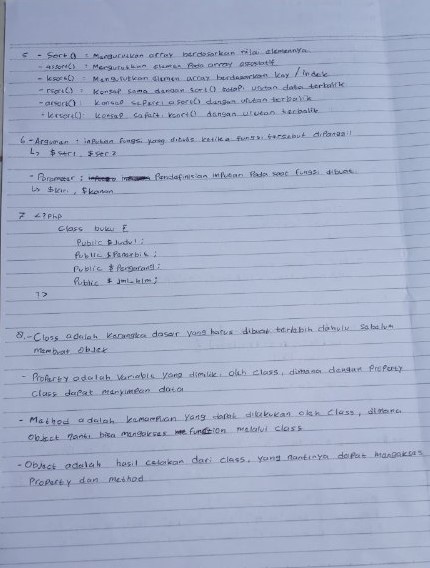 5 - Sort() : Mengurutkan array berdasarkan nilai elemennya
- assort() : Mengurutkan elemen Pada array asosiatif
- ksort() : Mengurutkan Elemen array berdasarkan key / indek
- rsort() : Konsep sama dengan sort() tetapi urutan data terbalik
- arsort() : konsep seperti asort() dengan urutan terbalik
- krsort() : konsep seperti ksort() dengan urutan terbalik
6 - Argumen : inputan fungsi yang ditulis ketika fungsi tersebut dipanggil
↳ $str1, $str2
- Parameter : Pendefinisian inputan Pada saat fungsi dibuat
↳ $kiri, $kanan
7 <?Php
Class buku {
Public $Judul ;
Public $Penerbit ;
Public $Pengarang ;
Public $Jml_hlm ;
?>
8. - Class adalah Kerangka dasar yang harus dibuat terlebih dahulu sebelum
membuat Objek
- Property adalah Variable yang dimiliki oleh class, dimana dengan Property
Class dapat menyimpan data
- Method adalah kemampuan yang dapat dilakukan oleh Class, dimana
Object nanti bisa mengakses function melalui class
- Object adalah hasil cetakan dari class, yang nantinya dapat mengakses
Property dan method